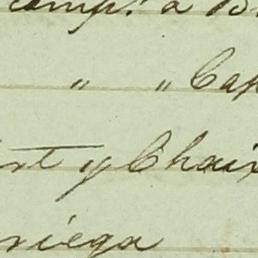 comp.ª a B
" " Cap
rt y Chaix
riega